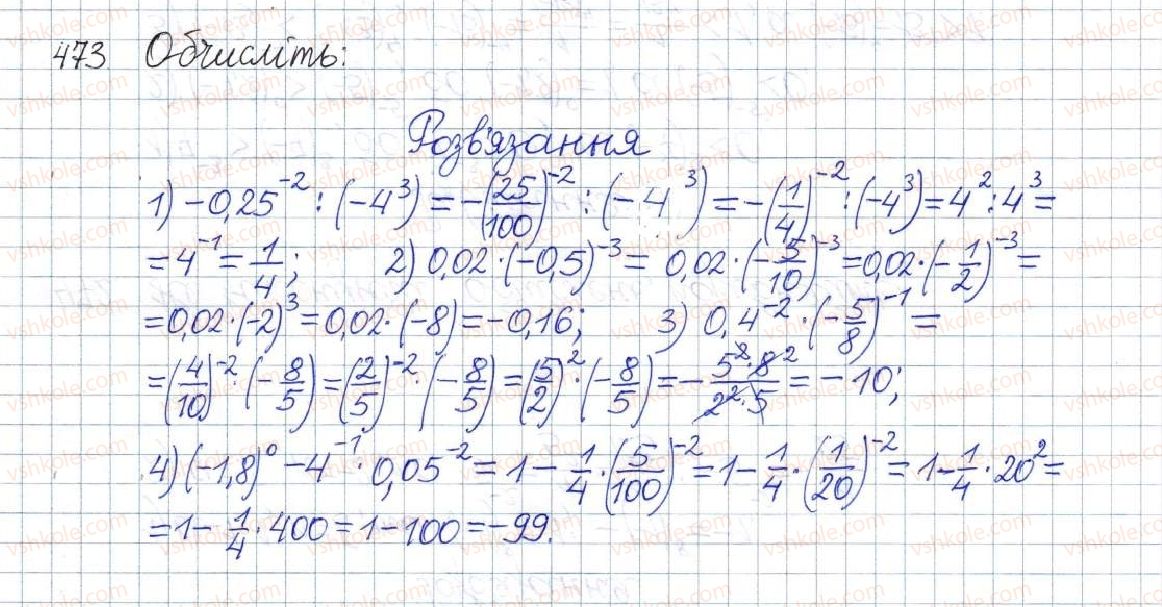 473. Обчисліть:
Розв'язання
1) -0,25⁻² : (-4³) = -(25/100)⁻² : (-4³) = -(1/4)⁻² : (-4³) = 4² : 4³ =
= 4⁻¹ = 1/4; 2) 0,02 · (-0,5)⁻³ = 0,02 · (-5/10)⁻³ = 0,02 · (-1/2)⁻³ =
= 0,02 · (-2)³ = 0,02 · (-8) = -0,16; 3) 0,4⁻² · (-5/8)⁻¹ =
= (4/10)⁻² · (-8/5) = (2/5)⁻² · (-8/5) = (5/2)² · (-8/5) = - 5² · 8 ² / 2² · 5 = -10;
4) (-1,8)⁰ - 4⁻¹ · 0,05⁻² = 1 - 1/4 · (5/100)⁻² = 1 - 1/4 · (1/20)⁻² = 1 - 1/4 · 20² =
= 1 - 1/4 · 400 = 1 - 100 = -99.
vshkole.com